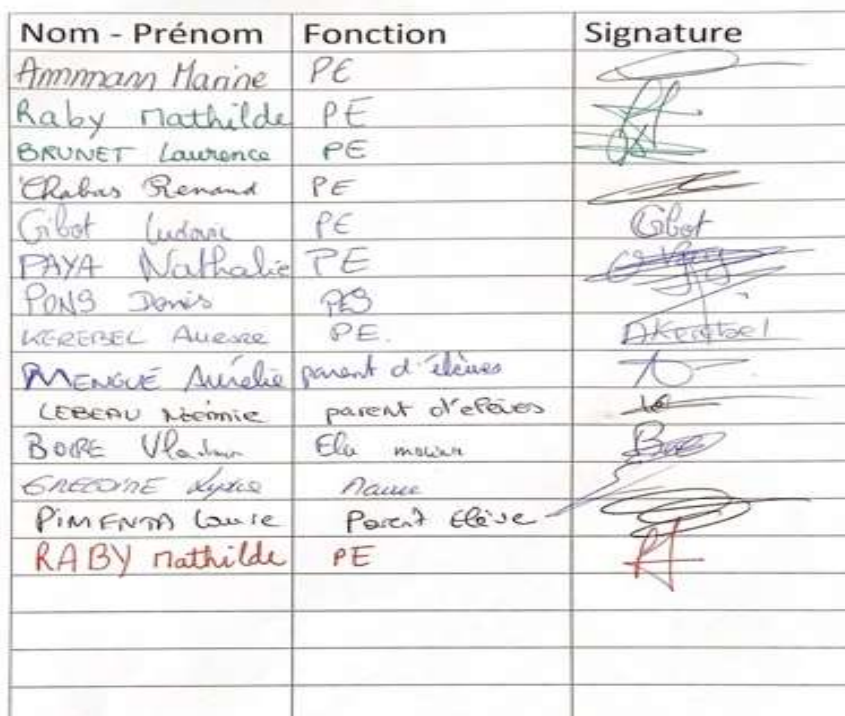 Nom - Prénom Fonction Signature
Ammann Marine PE
Raby Mathilde PE
BRUNET Laurence PE
Chabas Renaud PE
Gibot Ludovic PE Gibot
PAYA Nathalie PE
PONS Denis PES
KEREBEL Aurore PE. AKerebel
MENGUÉ Aurélie parent d'élèves
LEBEAU Noémie parent d'élèves
BOIRE Ela
GREGOIRE Lydie
PIMENTA Louise Parent Elève
RABY Mathilde PE